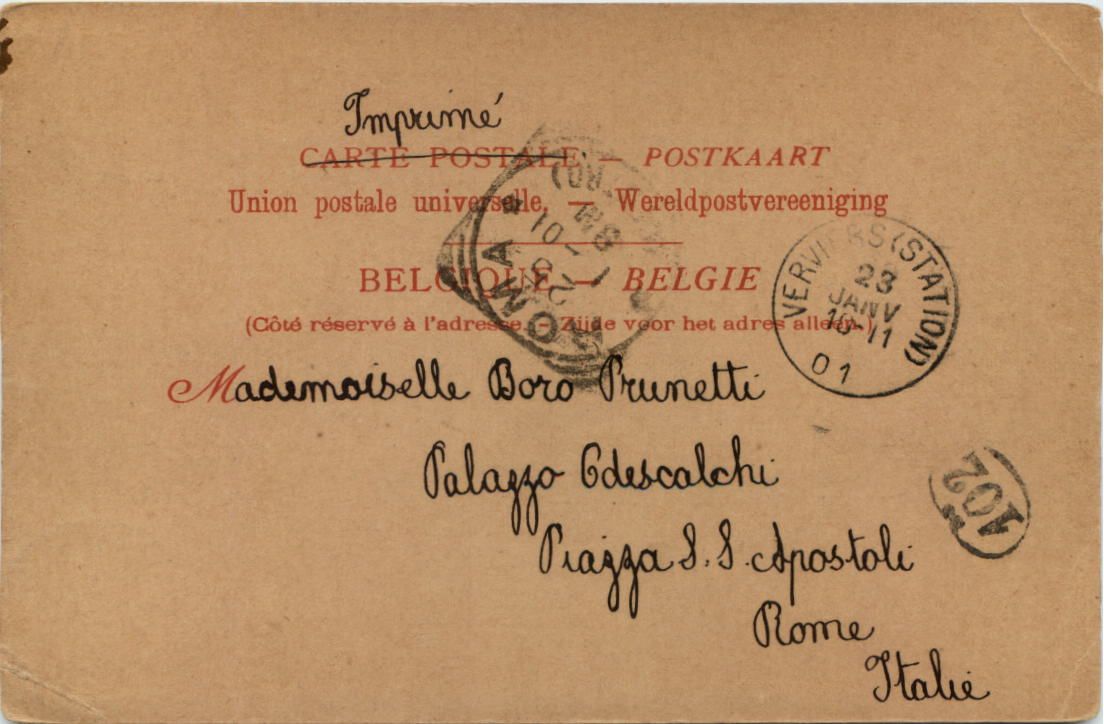 Imprimé
CARTE POSTALE — POSTKAART
Union postale universelle. — Wereldpostvereeniging
BELGIQUE — BELGIE
(Côté réservé à l'adresse. — Zijde voor het adres alleen.)
Mademoiselle Boro Prunetti
Palazzo Odescalchi
Piazza S. S. Apostoli
Rome
Italie
VERVIERS (STATION)
23
JANV
10-11
01
ROMA
102